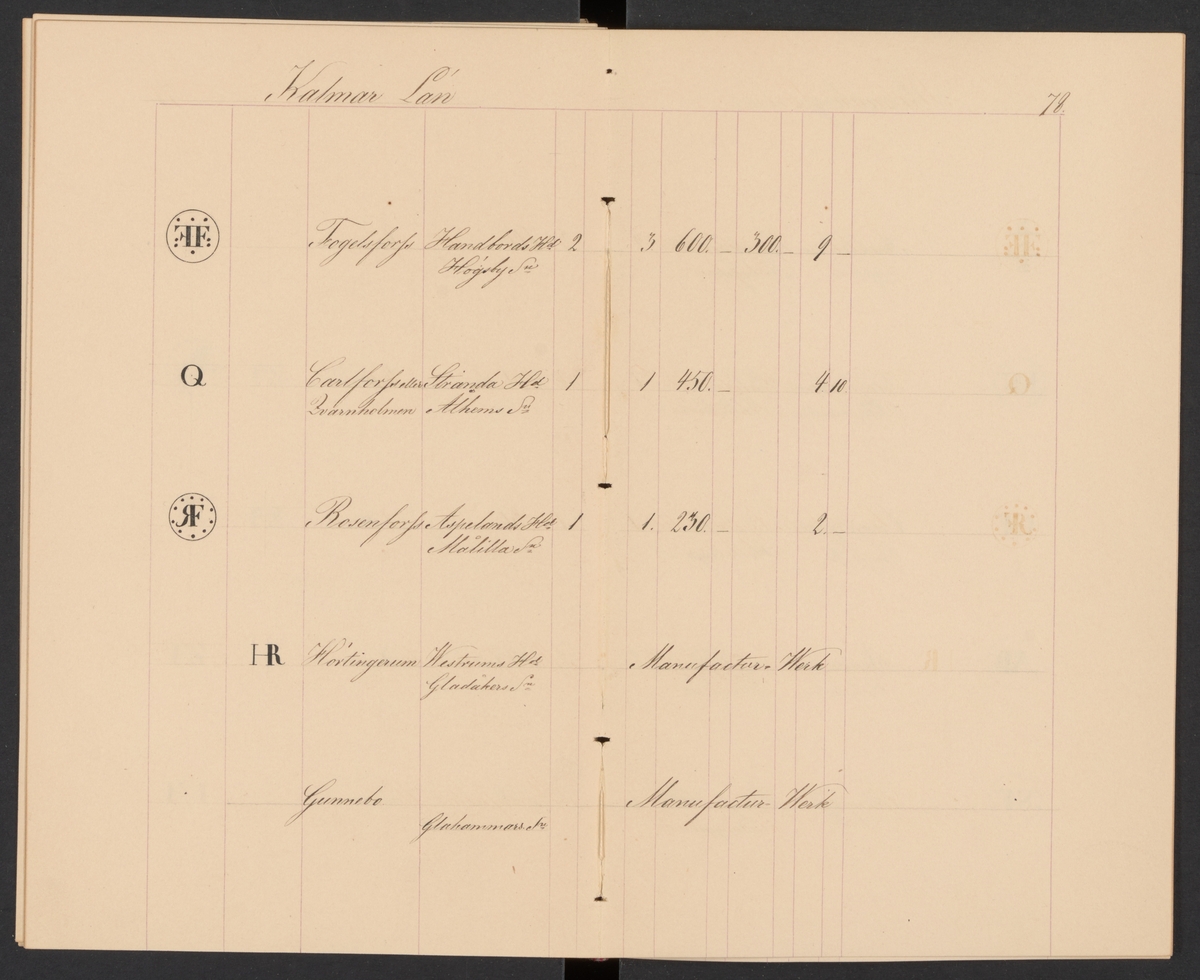 Kalmar Län
78.
FF Fogelsforss Handbords Hd 2 3 600. — 300. — 9 —
Högsby Sn
Q Carlforss eller Stranda Hd 1 1 450. — 4 10.
Qvarnholmen Ålhems Sn
RF Rosenforss Aspelands Hd 1 1. 230. — 2. —
Målilla Sn
HR Hörtingerum Westrums Hd Manufactor- Werk
Gladåkers Sn
Gunnebo Manufactur- Werk
Glahammars Sn